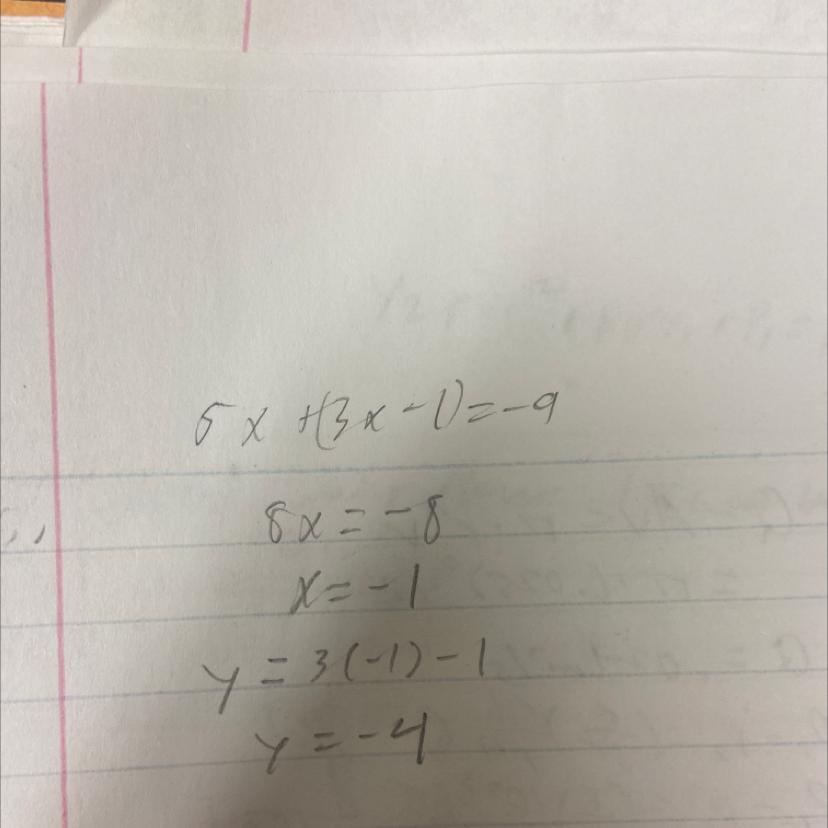 5x +(3x-1)=-9
8x=-8
x=-1
y=3(-1)-1
y=-4